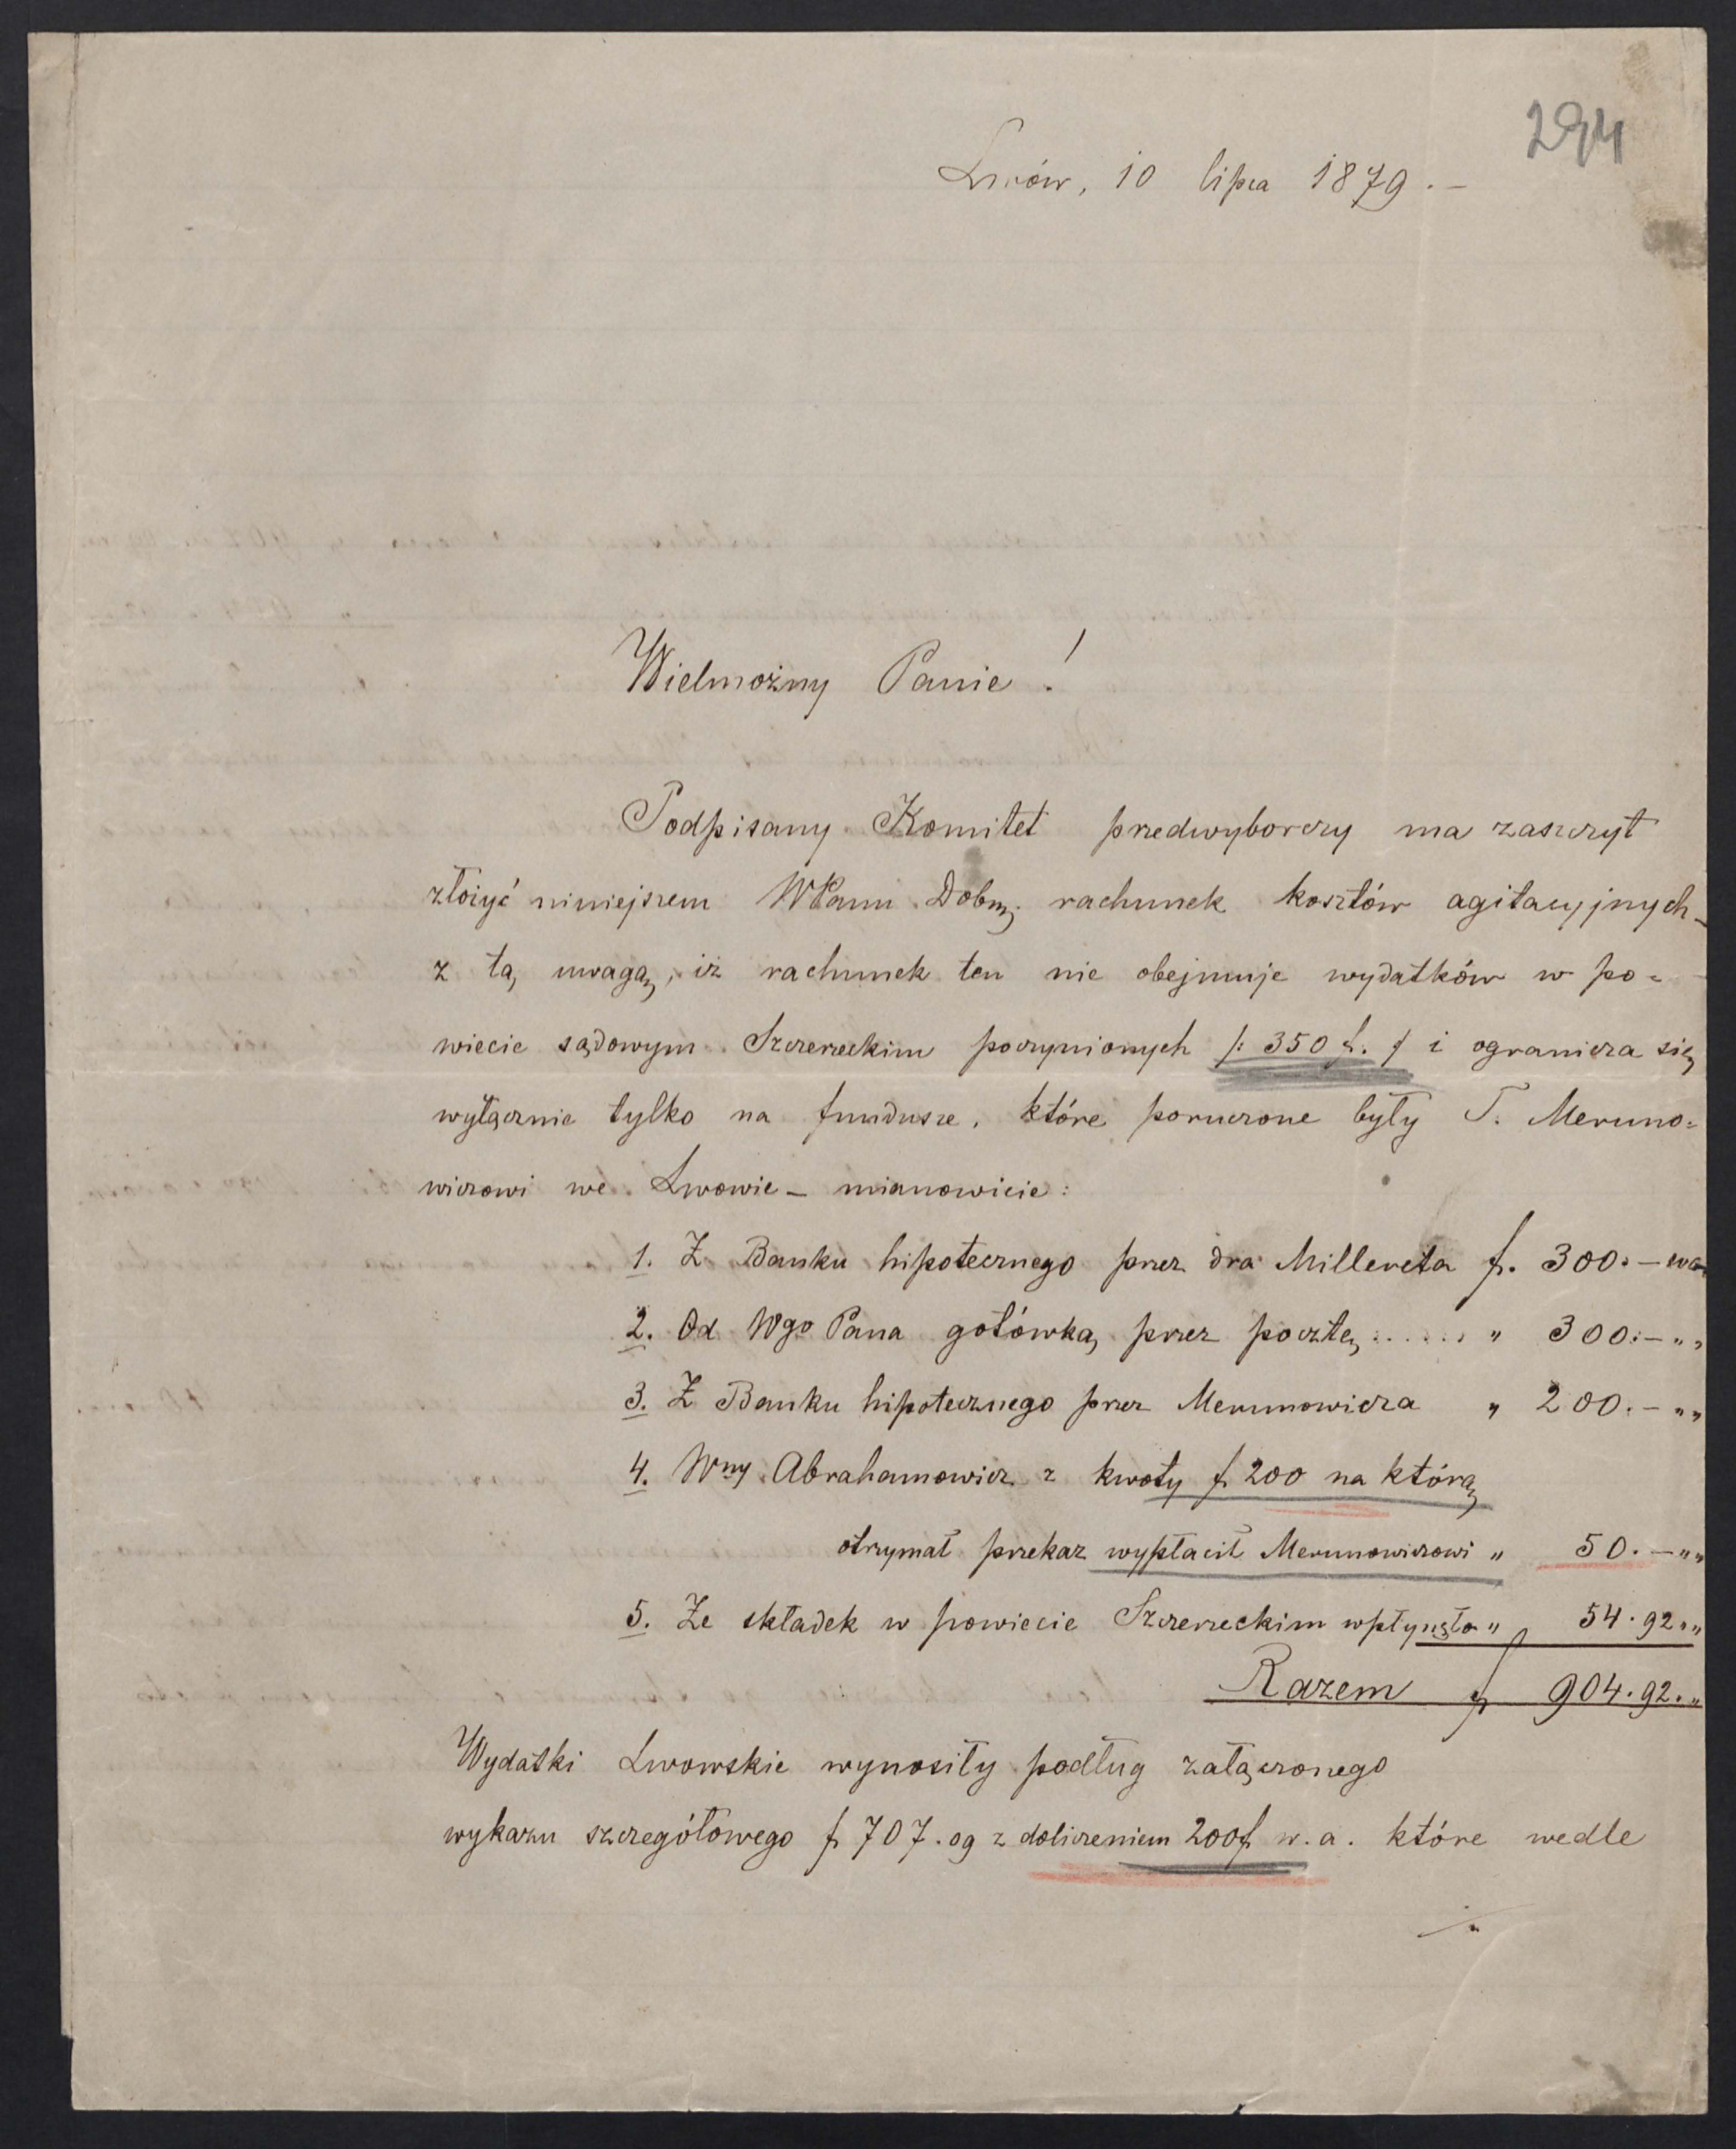 294
Lwów, 10 lipca 1879.–
Wielmożny Panie!
Podpisany Komitet przedwyborczy ma zaszczyt
złożyć niniejszem WPanu Dobrz. rachunek kosztów agitacyjnych–
z tą uwagą, iż rachunek ten nie obejmuje wydatków w po=
wiecie sądowym Szczerzeckim poczynionych /: 350 f. / i ogranicza się
wyłącznie tylko na fundusze, które poruczone były T. Meruno=
wiczowi we Lwowie – mianowicie:
1. Z Banku hipotecznego przez dra Millereta f. 300.– wa
2. Od Wgo Pana gotówką przez pocztę ...... " 300.– " "
3. Z Banku hipotecznego przez Merunowicza " 200.– " "
4. Wny Abrahamowicz z kwoty f 200 na którą
otrzymał przekaz wypłacił Merunowiczowi " 50.– " "
5. Ze składek w powiecie Szczerzeckim wpłynęło " 54.92 " "
Razem f 904.92. "
Wydatki Lwowskie wynosiły podług załączonego
wykazu szczegółowego f 707.09 z doliczeniem 200f w.a. które wedle